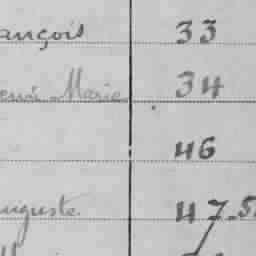 ançois 33
Marie 34
46
uguste 47-5